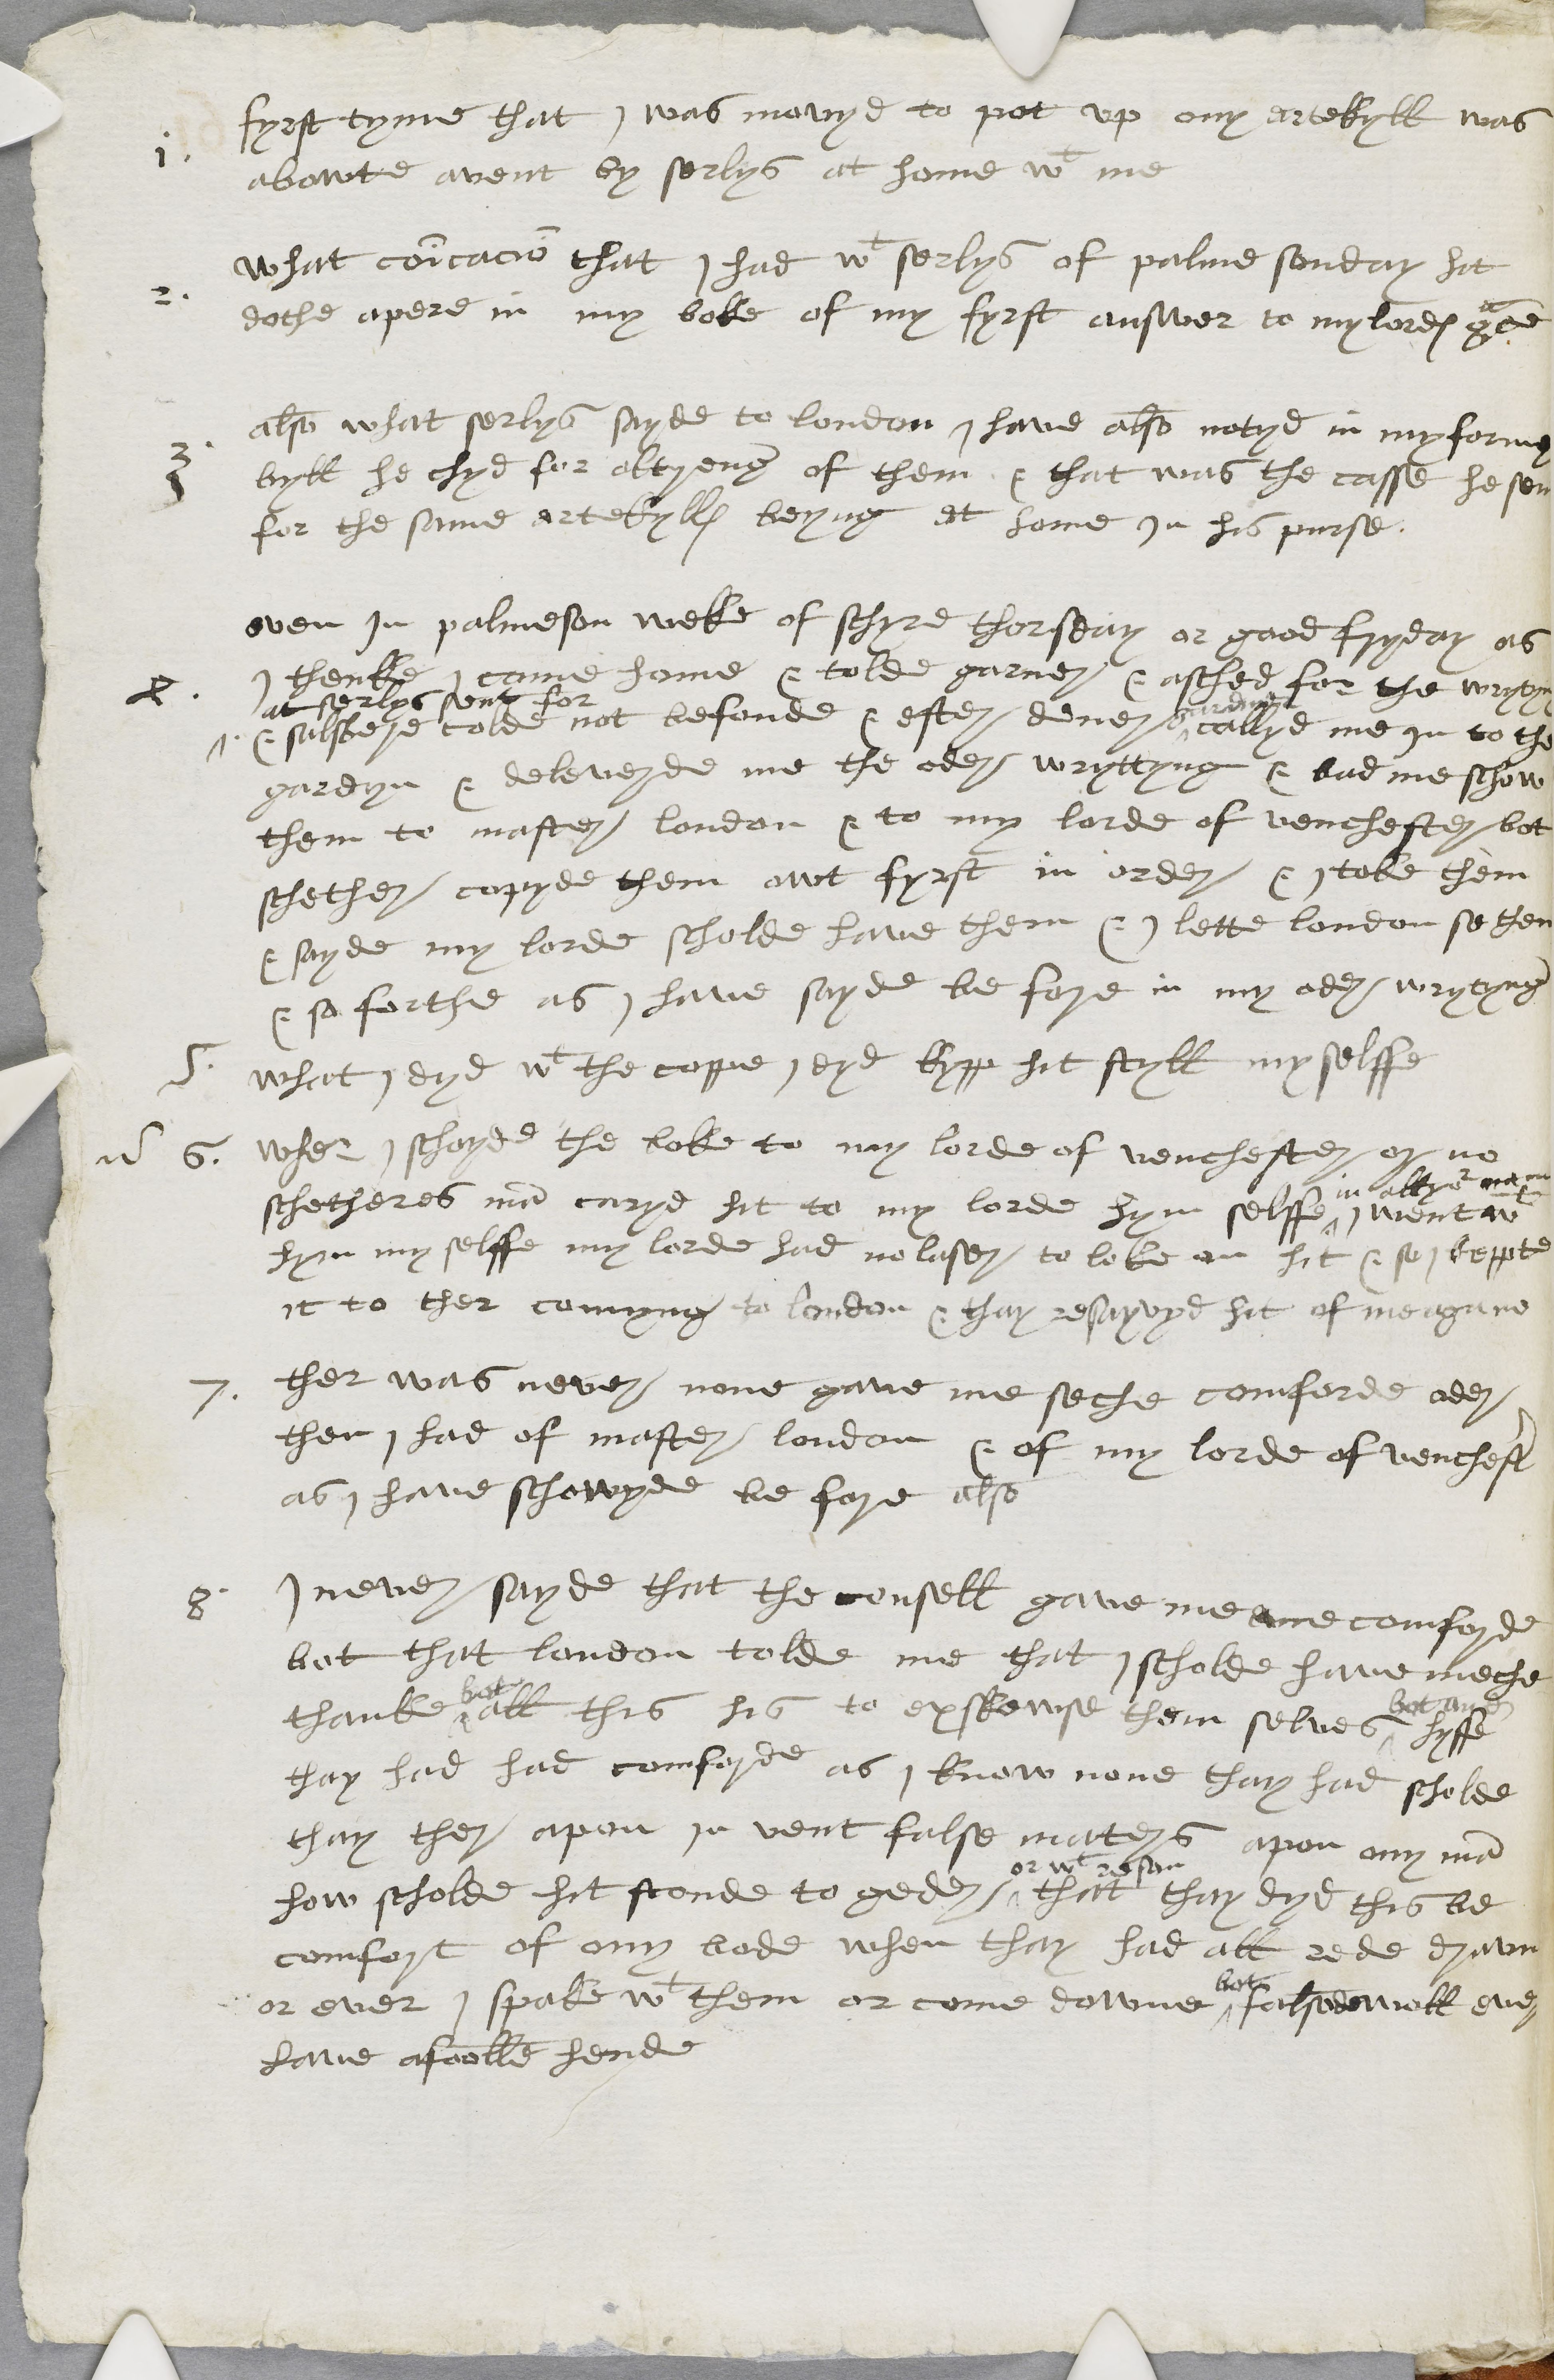 1. fyrst tyme that I was movyd to pot vp ony artekyll was
abowte avent by serlys at home wt me
2. what coicacio that I had wt serlys of palme sonday hit
dothe apere in my boke of my fyrst answer to my lordes gce
3. also what serlys sayde to london I have also notyd in my former
byll he chyd for altyeng of them & that was the casse he sen
for the same artekylles beyng at home In his purse.
even In palmeson weke of schyre thorsday or good fryday as
4. I thenke I came home & tolde garner & asched for the wrytyn
at serlys sent for
& salsbere colde not befonde & after dener gardener callyd me In to the
gardyn & deleveryde me the oder wryttyng & bad me schow
them to master london & to my lorde of venchester bot
schether copyde them owt fyrst in order & I toke them
& sayde my lorde scholde have them & I lette london se then
& so forthe as I have sayde be fore in my oder wrytyng
5. what I dyd wt the coppe I dyd kypp hit styll my selffe
6. wher I schoyde the boke to my lorde of venchester or no
schetheres ma caryd hit to my lorde hym selffe I went wt
hym my selffe my lorde had no laser to loke on hit & so I keppte
it to ther comyng to london & thay resayvyd hit of me agane
7. ther was never none gave me seche comforde oder
then I had of master london & of my lorde of venchest
as I have schowyde be fore also
8. I never sayde that the consell gave me ane comforde
bot that london tolde me that I scholde have meche
thanke bot all this his to exskewse them selves bot and hyffe
thay had had comforde as I know none thay had scholde
thay ther apon In vent false maters apon ony ma
how scholde hit stonde to geder or wt reson that thay dyd this be
comfort of ony bode when thay had all rede drawn
or ever I spake wt them or come downe bot falsode woll ever
have a foolle hende